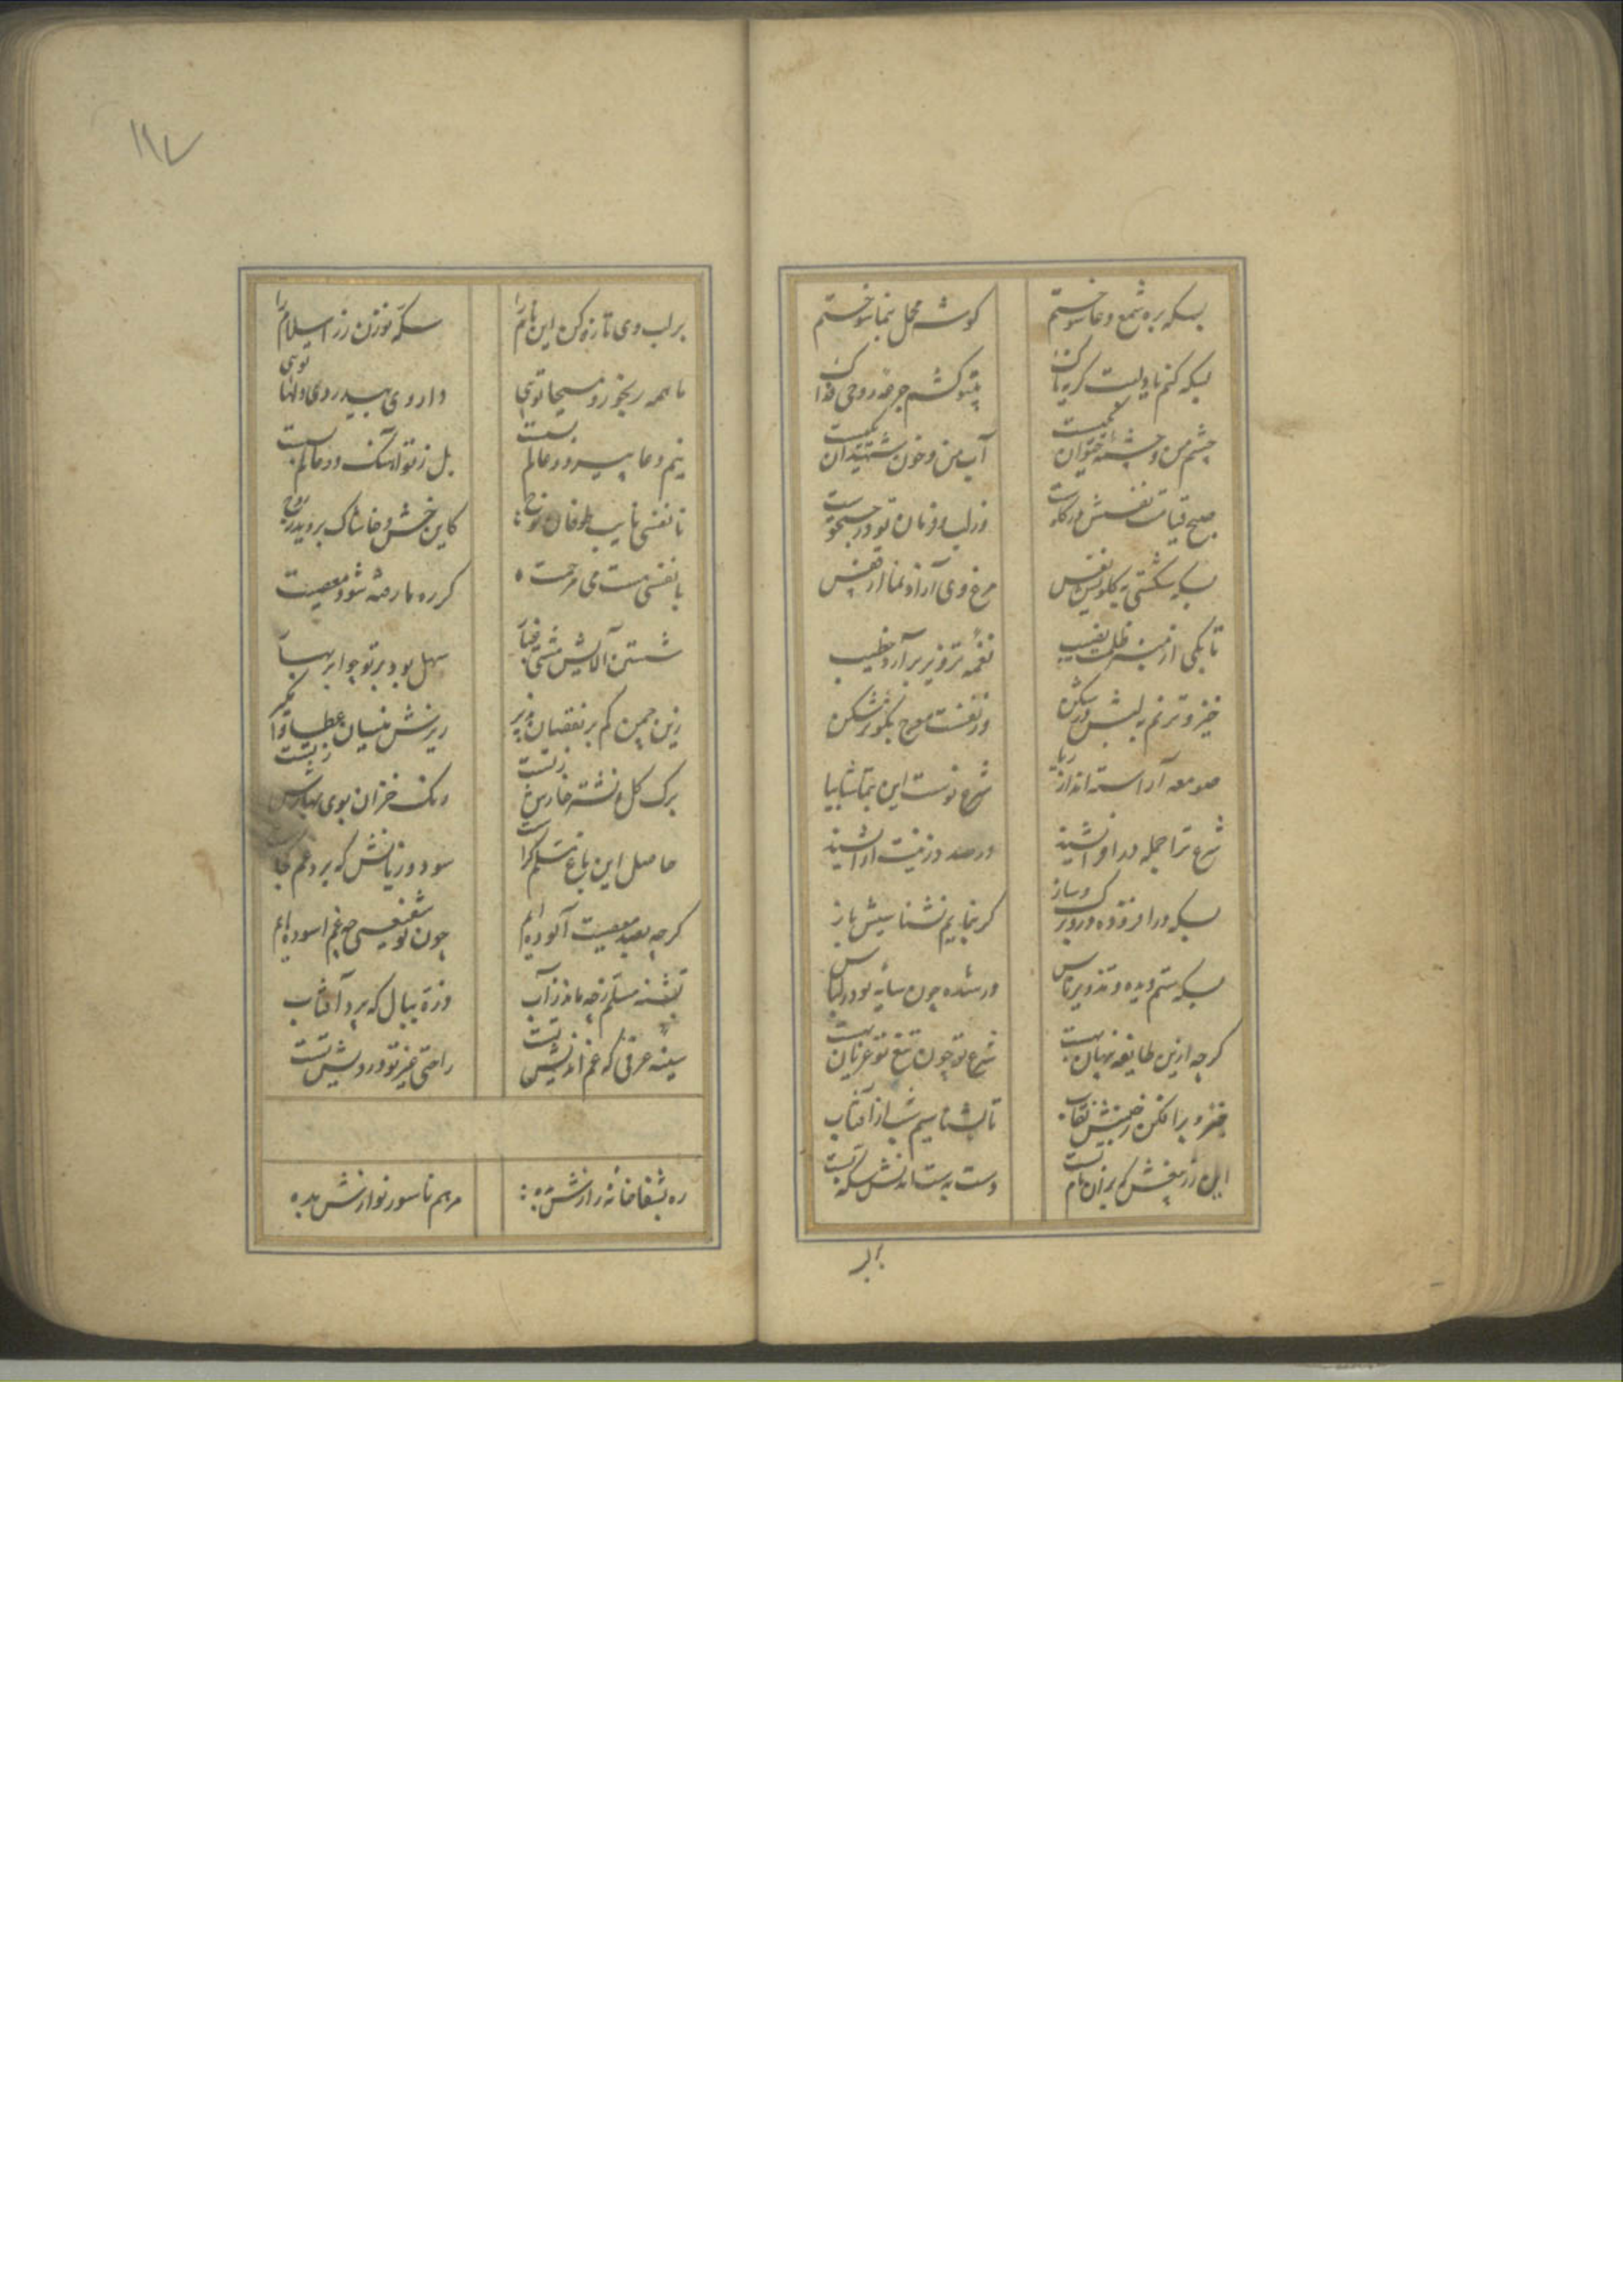 بسکه بره شمع دعا سوختم
کوشه محمل بنما سوختم
بسکه کنم یا دلبت کریه ناک
چشم من و چشمه حیوان یکیست
آب من و خون شهیدان یکیست
صبح قیامت نفسش در کلوست
وز لب و فرمان تو در جستجوست
بسکه شکستی به کلویش نفس
مرغ وی آزاد نما از قفس
تا بکی از منبر ظلمت نصیب
نغمه تزویر برآرد خطیب
خیز و ترنم به لبش در شکن
صومعه آراسته اند از ریا
شرع نوست این بتماشا بیا
شرع ترا جمله در او اشیند
درصدد زینت او اشیند
بسکه ورا فزوده در و برک و ساز
کر بنمایم نشناسیش باز
بسکه ستم دیده و تذویر ناس
ور شده چون سایه بود در لباس
کرچه ازین طایفه پنهان بهست
شرع تو چون تیغ تو عریان بهست
خیز و برافکن ز جمینش نقاب
تا بشناسیم شب از آفتاب
این زر مغشش که بر آن نام تست
دست به ستاندنش سکه تست
بر لب
بر لب وی تازه کن این نام را
سکه نوزن زر اسلام را
ما همه رنجور و مسیحا تویی
داروی بیدردی دلها تویی
نیم دعا پیر و در عالم بست
بل ز تو آهنگ و در عالم بست
تا نفسی نایب طوفان نوح
کاین خس و خاشاک بروید ز روح
با نفسی مست می مرحمت
کز ره ما رفته شود معصیت
شستن آلایش مشتی
سهل بود بر تو جو ابر بهار
زین چمن کم بر نقصان پذیر
ریزش نیسان عطا وا مکیر
برک کل و نشتر خارش ز تست
رنک خزان بوی بهارش ز تست
حاصل این باغ مسلم کراست
سود و زیانش که برد غم کجاست
کرچه بصد معصیت آلوده ایم
چون تو شفیعی چه غم آسوده ایم
تشنه مسلم نچه ماند ز آب
ذره ببال که پرد آفتاب
سینه عرفی که غم اندیش تست
راحتی غیر تو درویش تست
ره بشفاخانه رازش بده
مرهم ناسور نوازش بده
۱۹۷